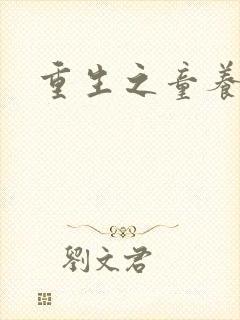 重生之童養
劉文君